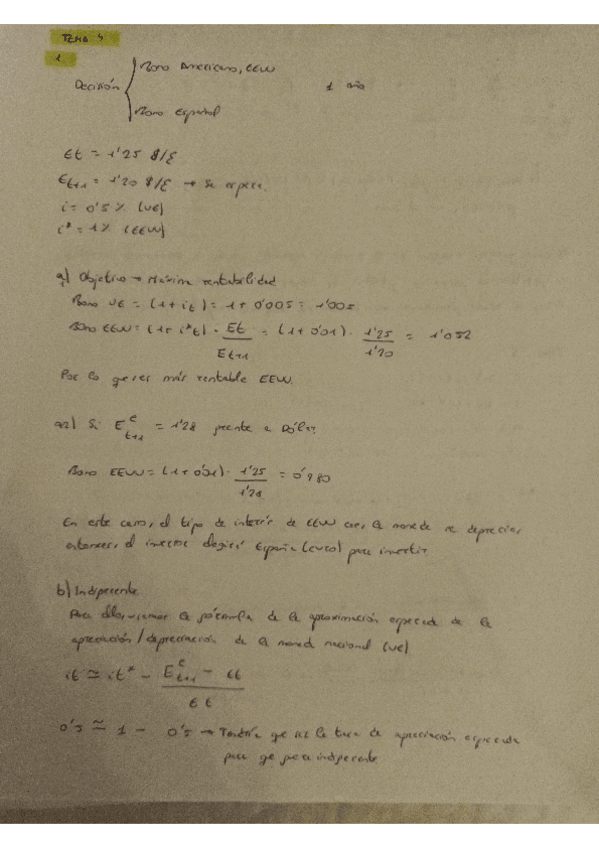 TEMA 4
1.
Decisión { Bono Americano, EEUU
Bono Español
1 año
Et = 1'25 $/€
Et+1 = 1'20 $/€ → Se espera.
i = 0'5 % (UE)
i* = 1% (EEUU)
a) Objetivo → Máxima rentabilidad
Bono UE = (1 + it) = 1 + 0'005 = 1'005
Bono EEUU = (1 + i*t) · Et / Et+1 = (1 + 0'01) · 1'25 / 1'20 = 1'052
Por lo que es más rentable EEUU.
a2) Si E^e t+1 = 1'28 frente a Dólar.
Bono EEUU = (1 + 0'01) · 1'25 / 1'28 = 0'980
En este caso, el tipo de interés de EEUU cae, la moneda se deprecia,
entonces, el inversor elegirá España (euro) para invertir.
b) Indiferente
Para ello, usamos la fórmula de la aproximación esperada de la
apreciación / depreciación de la moneda nacional (UE)
it ≃ it* - (E^e t+1 - Et) / Et
0'5 ≃ 1 - 0'5 → Tendría que ser la tasa de apreciación esperada
para que sea indiferente